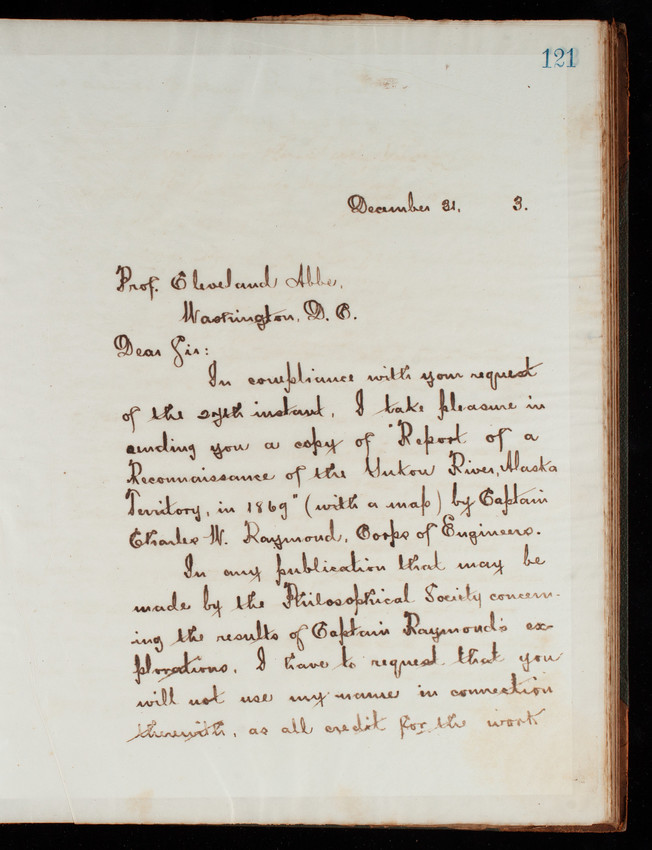 121
December 31, 3.
Prof. Cleveland Abbe,
Washington, D. C.
Dear Sir:
In compliance with your request
of the 27th instant, I take pleasure in
sending you a copy of "Report of a
Reconnaissance of the Yukon River, Alaska
Territory, in 1869" (with a map) by Captain
Charles W. Raymond, Corps of Engineers.
In any publication that may be
made by the Philosophical Society concern-
ing the results of Captain Raymond's ex-
plorations, I have to request that you
will not use my name in connection
therewith, as all credit for the work